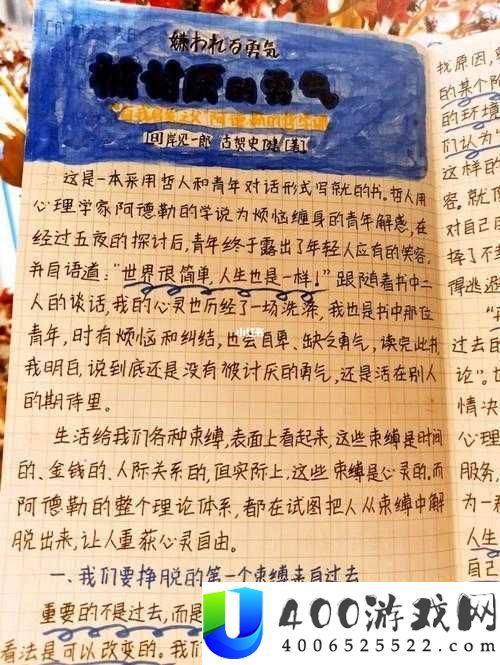 嫌われる勇気
被讨厌的勇气
"自我启发之父"阿德勒的哲学课
[日]岸见一郎 古贺史健[著]
这是一本采用哲人和青年对话形式写就的书。哲人用
心理学家阿德勒的学说为烦恼缠身的青年解惑,在
经过五夜的探讨后,青年终于露出了年轻人应有的笑容,
并自语道:"世界很简单,人生也是一样!"跟随着书中二
人的谈话,我的心灵也历经了一场洗涤,我也是书中那位
青年,时有烦恼和纠结,也会自卑、缺乏勇气,读完此书,
我明白,说到底还是没有被讨厌的勇气,还是活在别人
的期待里。
小红书
生活给我们各种束缚,表面上看起来,这些束缚是时间
的、金钱的、人际关系的,但实际上,这些束缚是心灵的。而
阿德勒的整个理论体系,都在试图把人从束缚中解
脱出来,让人重获心灵自由。
一、我们要挣脱的第一个束缚来自过去
重要的不是过去,而是
看法是可以改变的。我们
找原因,
的某个阶
的环境
们认为
这样的
容。就
对自己
择了不
得逃避
"再
过去的
论"。
情决
心理
服务,
为一
人生
自己
400游戏网
4006525522.com